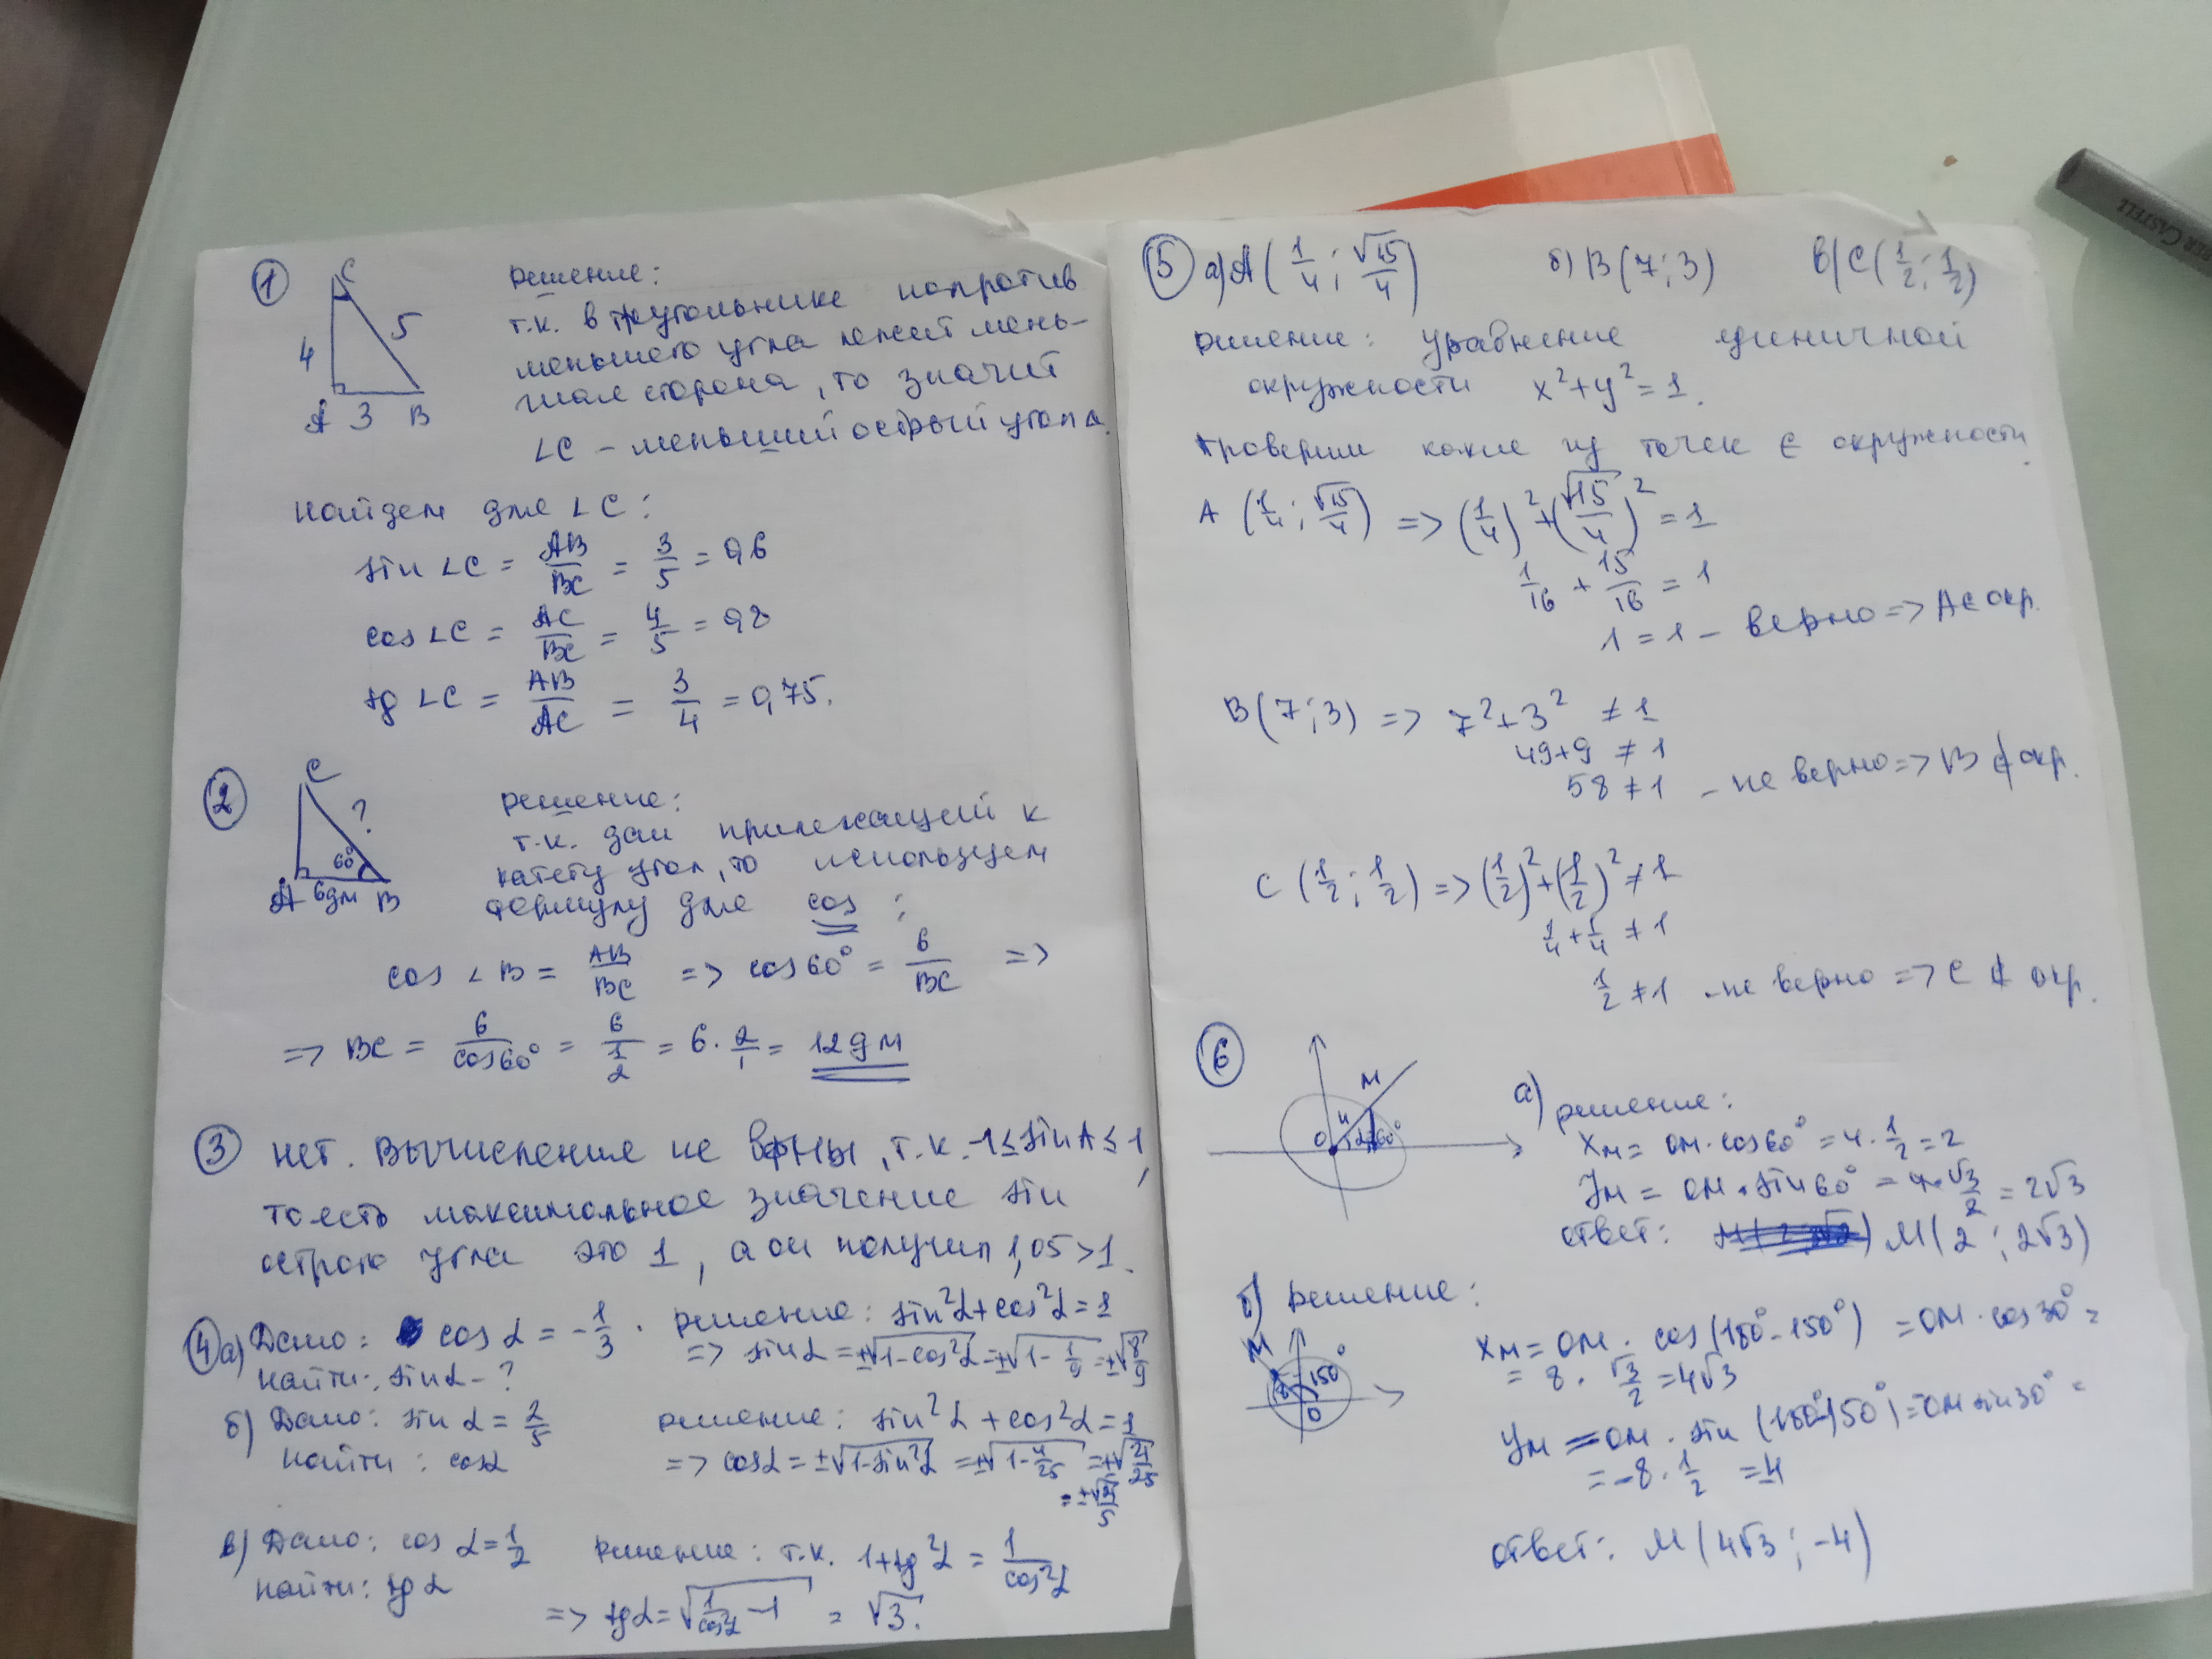 ①
C
4
5
A 3 B
решение:
т.к. в треугольнике напротив
меньшего угла лежит мень-
шая сторона, то значит
∠C – меньший острый угол.
найдем для ∠C:
sin ∠C = AB/BC = 3/5 = 0,6
cos ∠C = AC/BC = 4/5 = 0,8
tg ∠C = AB/AC = 3/4 = 0,75.
②
C
?
60°
A 6дм B
решение:
т.к. дан прилежащий к
катету угол, то используем
формулу для cos:
cos ∠B = AB/BC => cos60° = 6/BC =>
=> BC = 6/cos60° = 6/(1/2) = 6·2/1 = 12дм
③ нет. Вычисление не верны, т.к. -1≤sinA≤1,
то есть максимальное значение sin
острого угла это 1, а он получил 1,05>1.
④ а) Дано: cos α = -1/3. решение: sin²α+cos²α=1
найти: sinα-? => sinα=±√(1-cos²α)=±√(1-1/9)=±√(8/9)
б) Дано: sin α = 2/5 решение: sin²α+cos²α=1
найти: cosα => cosα=±√(1-sin²α)=±√(1-4/25)=±√(21/25)
=±√21/5
в) Дано: cos α=1/2 решение: т.к. 1+tg²α = 1/cos²α
найти: tgα => tgα=√(1/cos²α -1) = √3.
⑤ а) A(1/4; √15/4) б) B(7;3) в) C(1/2; 1/2)
решение: уравнение единичной
окружности x²+y²=1.
Проверим какие из точек ∈ окружности
A (1/4; √15/4) => (1/4)²+(√15/4)²=1
1/16 + 15/16 = 1
1 = 1 – верно => A∈окр.
B(7;3) => 7²+3² ≠1
49+9 ≠ 1
58 ≠ 1 – не верно => B ∉ окр.
C (1/2; 1/2) => (1/2)²+(1/2)²≠1
1/4+1/4 ≠ 1
1/2 ≠ 1 – не верно => C ∉ окр.
⑥
M
4
O α=60°
а) решение:
xм = OM·cos60° = 4·1/2 = 2
yм = OM·sin60° = 4·√3/2 = 2√3
ответ: M(2; 2√3)
б) решение:
M
8 150°
O
xм = OM·cos(180°-150°) = OM·cos30° =
= 8·√3/2 = 4√3
yм = OM·sin(180°-150°) = OM sin30° =
= -8·1/2 = 4
ответ: M(4√3; -4)
BER CASTELL